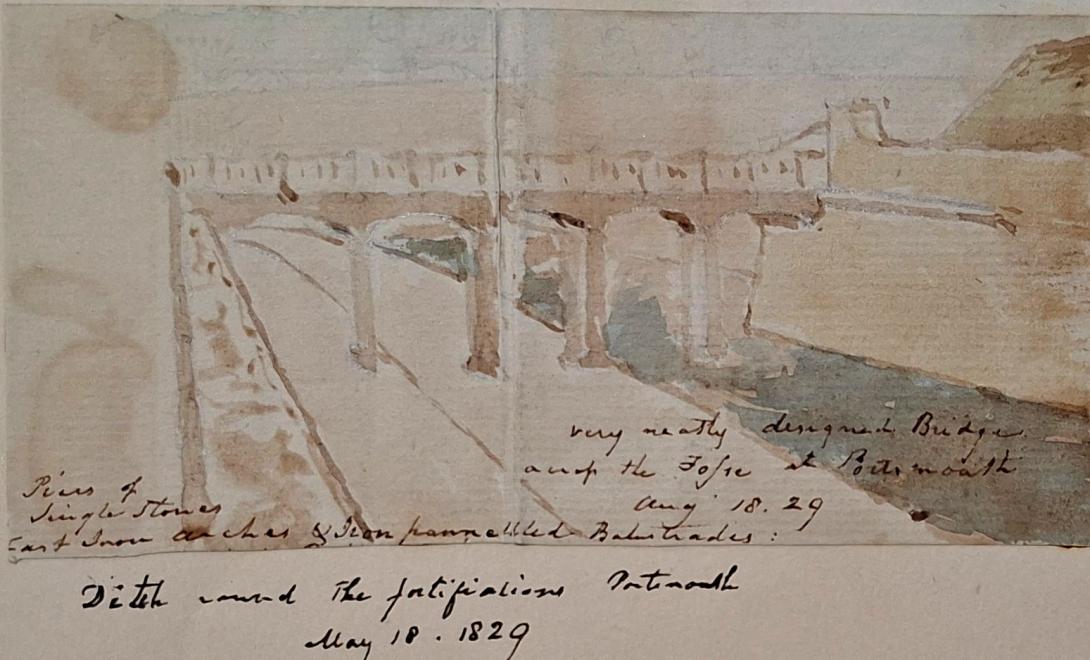 very neatly designed Bridge
across the Fosse at Portsmouth
Aug 18. 29
Piers of
Single Stones
Cast Iron Arches & Iron pannelled Balustrades:
Ditch round the fortifications Portsmouth
May 18. 1829